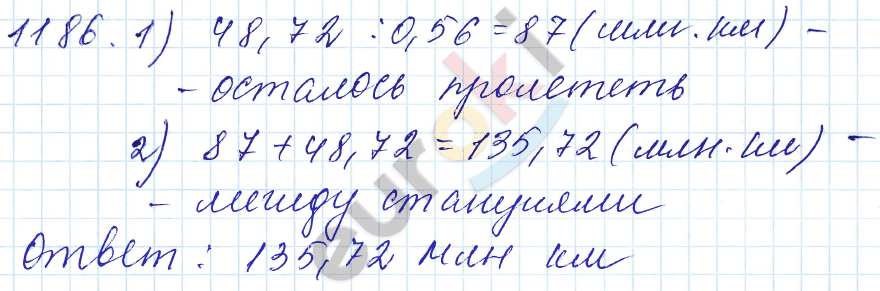 1186. 1) 48,72 : 0,56 = 87 (млн. км) -
- осталось пролететь
2) 87 + 48,72 = 135,72 (млн. км) -
- между станциями
Ответ: 135,72 млн км
euroki